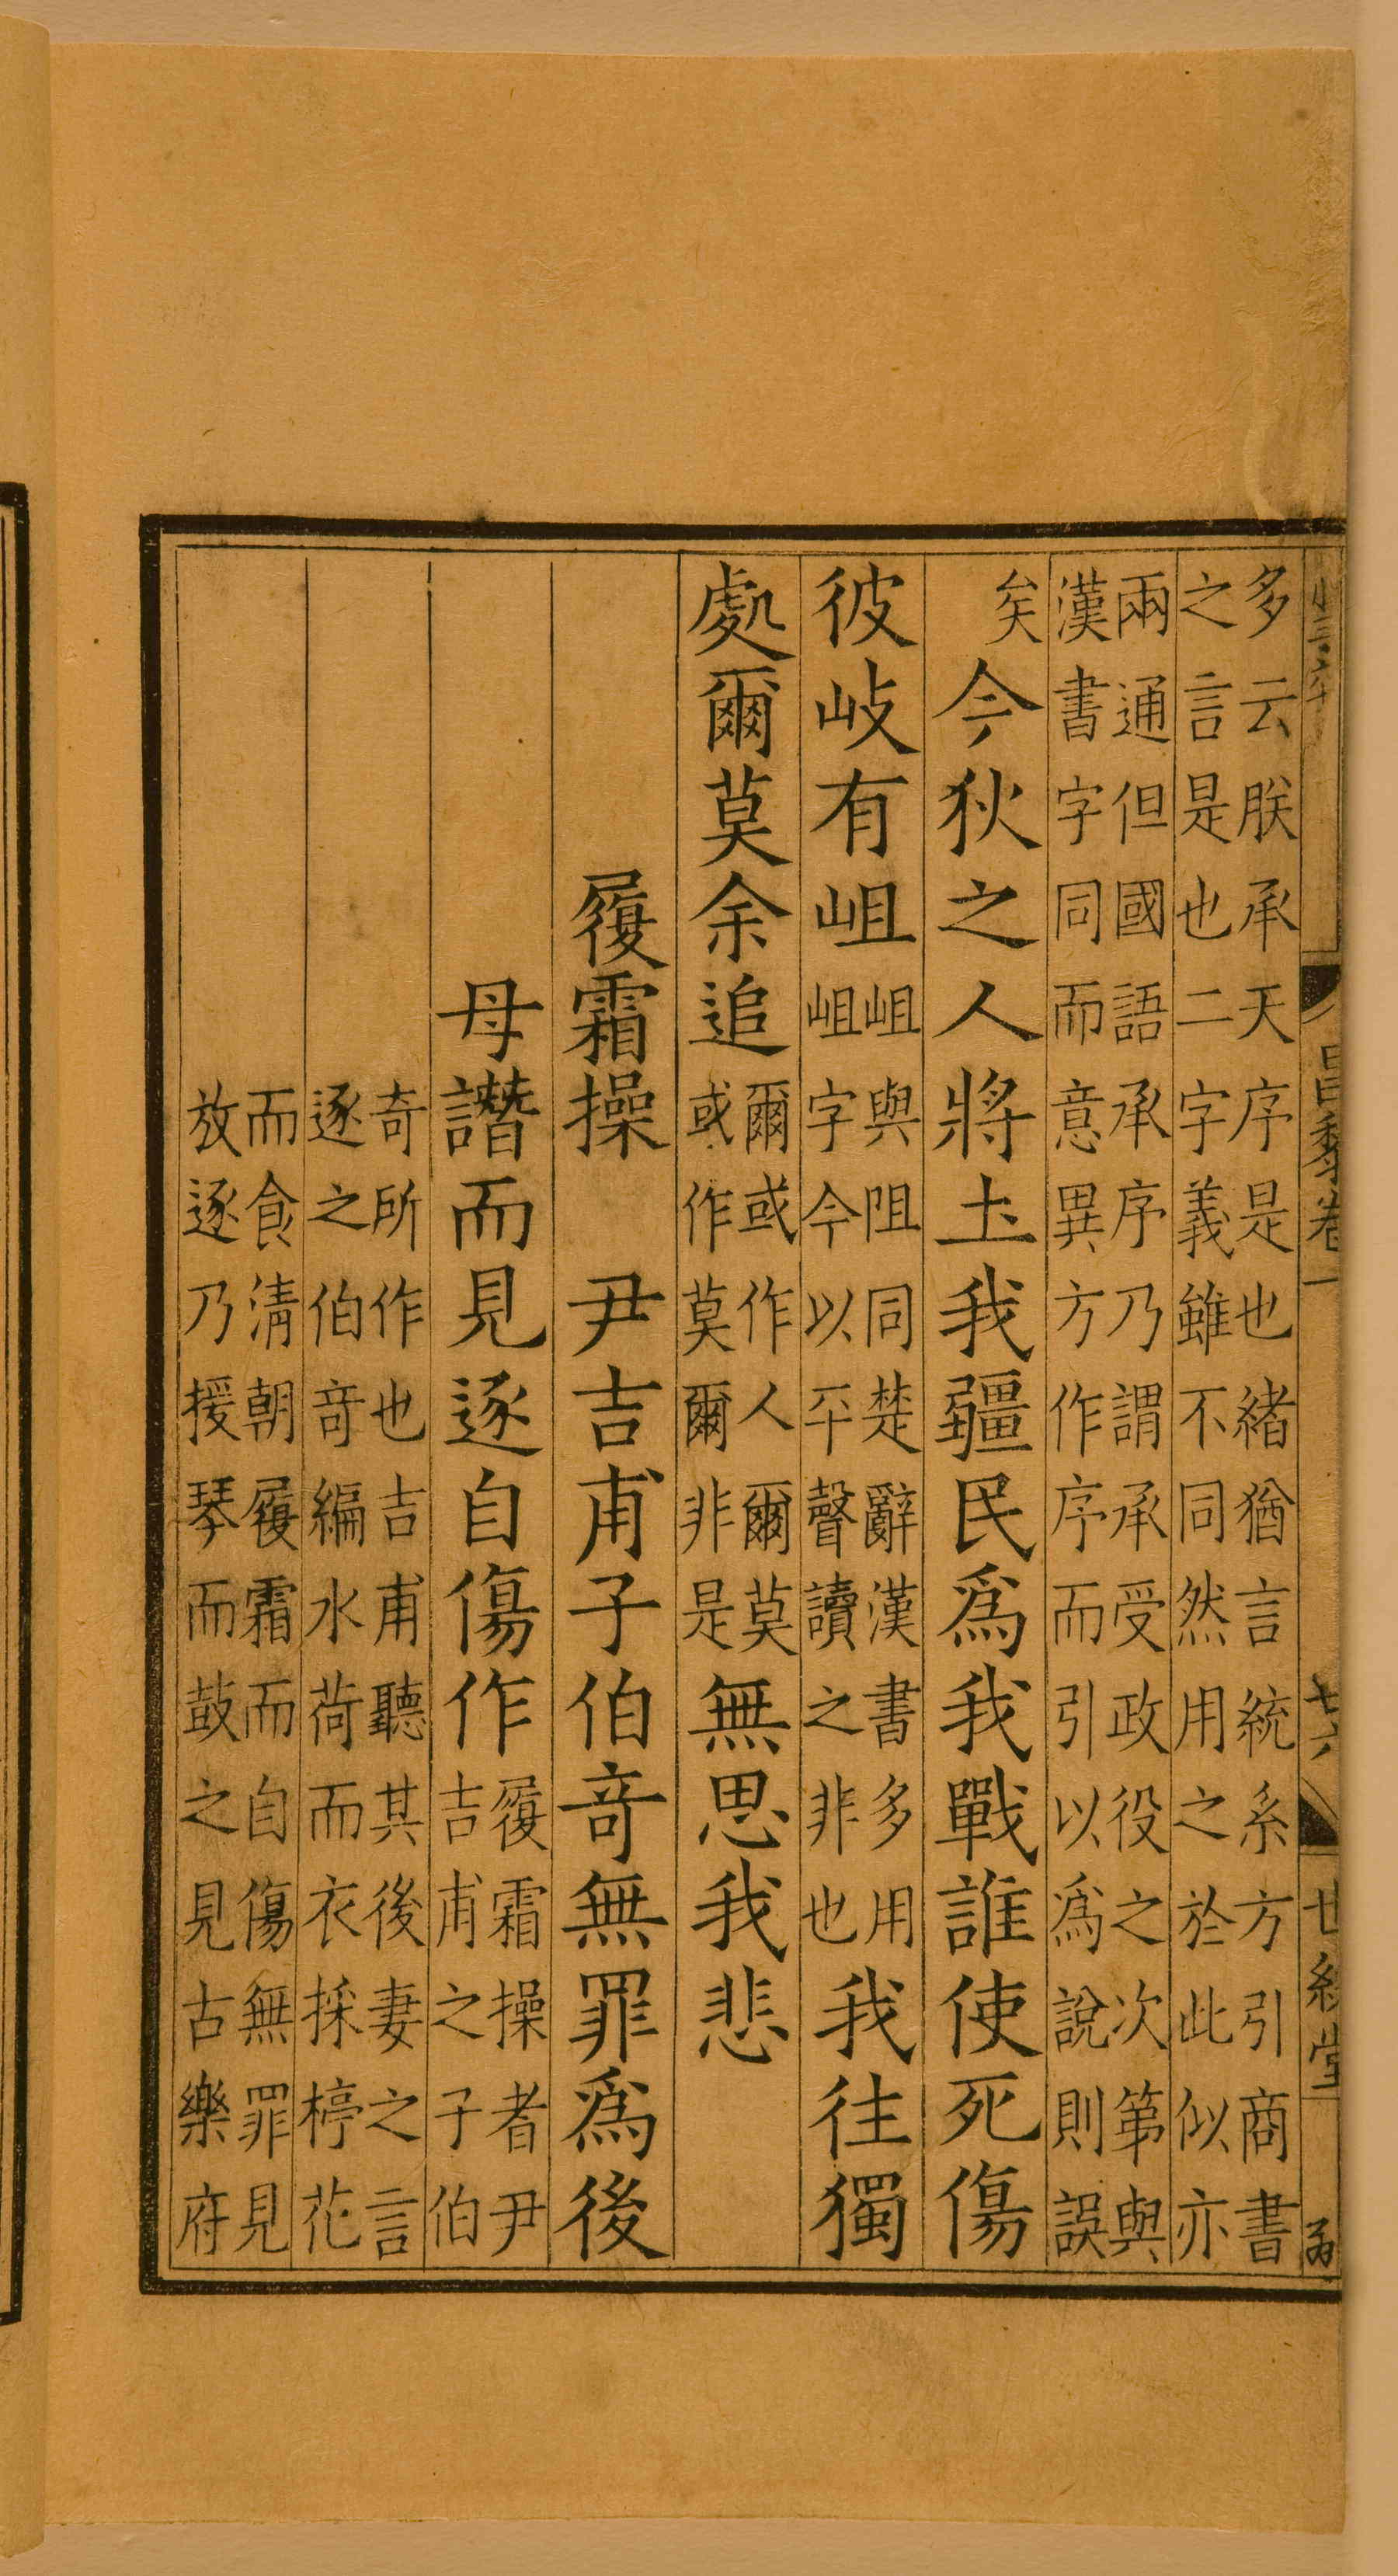 多云朕承天序是也緒猶言統系方引商書
之言是也二字義雖不同然用之於此似亦
兩通但國語承序乃謂承受政役之次第與
漢書字同而意異方作序而引以爲說則誤
矣
今狄之人將土我疆民爲我戰誰使死傷
彼岐有岨
岨與阻同楚辭漢書多用
岨字今以平聲讀之非也
我往獨
處爾莫余追
爾或作人爾莫
或作莫爾非是
無思我悲
履霜操 尹吉甫子伯竒無罪爲後
母譖而見逐自傷作
履霜操者尹
吉甫之子伯
奇所作也吉甫聽其後妻之言
逐之伯竒編水荷而衣採楟花
而食淸朝履霜而自傷無罪見
放逐乃援琴而鼓之見古樂府
昌黎卷一
世綵堂